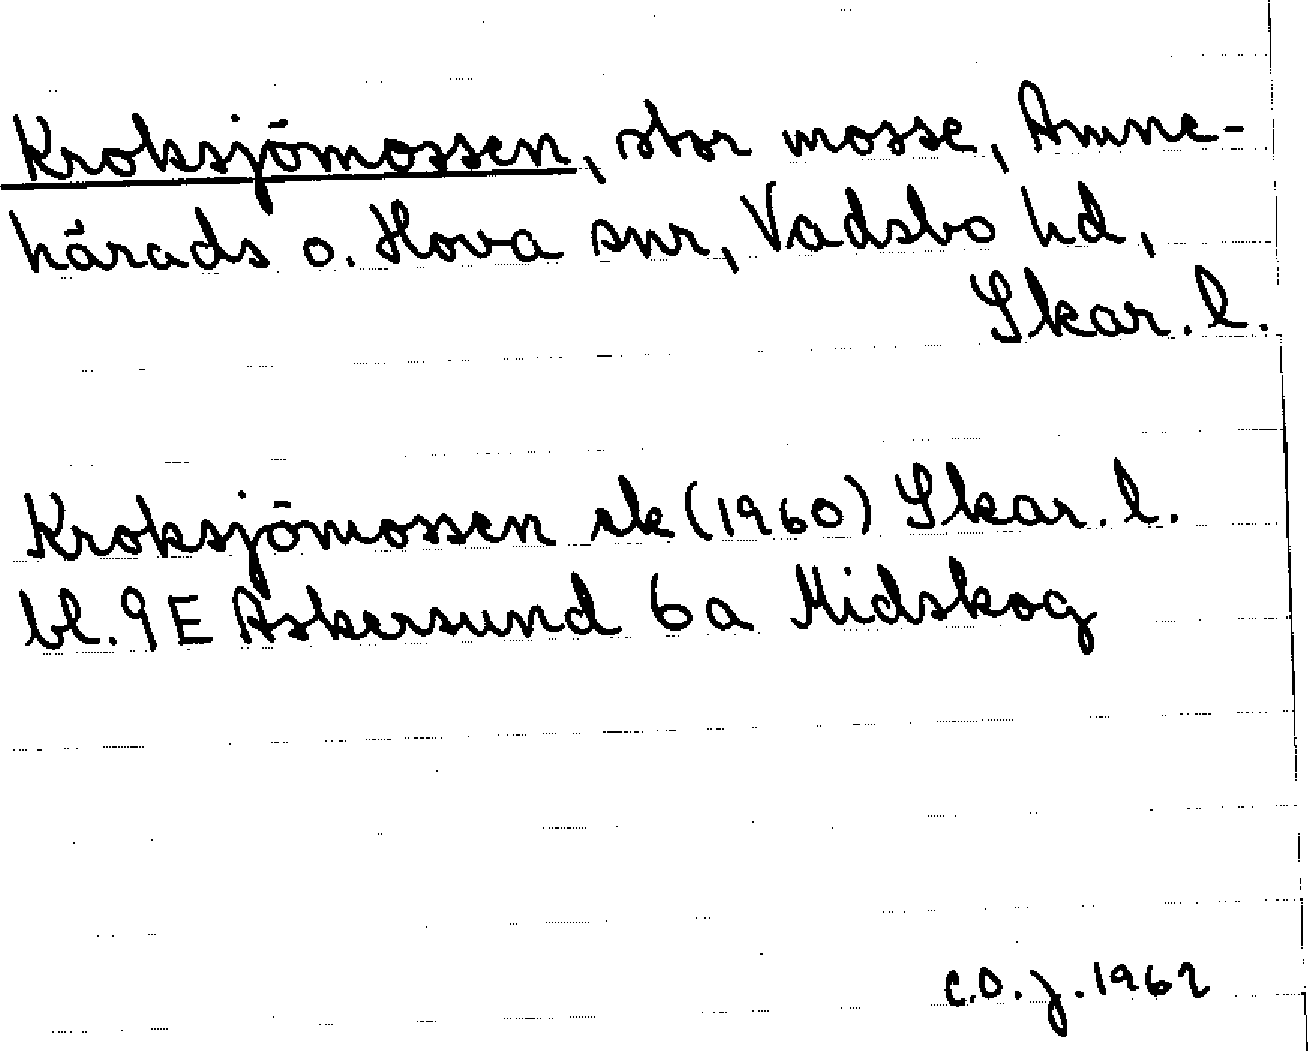 Kroksjömossen, stor mosse, Amne-
härads o. Hova snr, Vadsbo hd,
Skar. l.
Kroksjömossen ek (1960) Skar. l.
bl. 9 E Askersund 6a Midskog
C.O.J. 1962